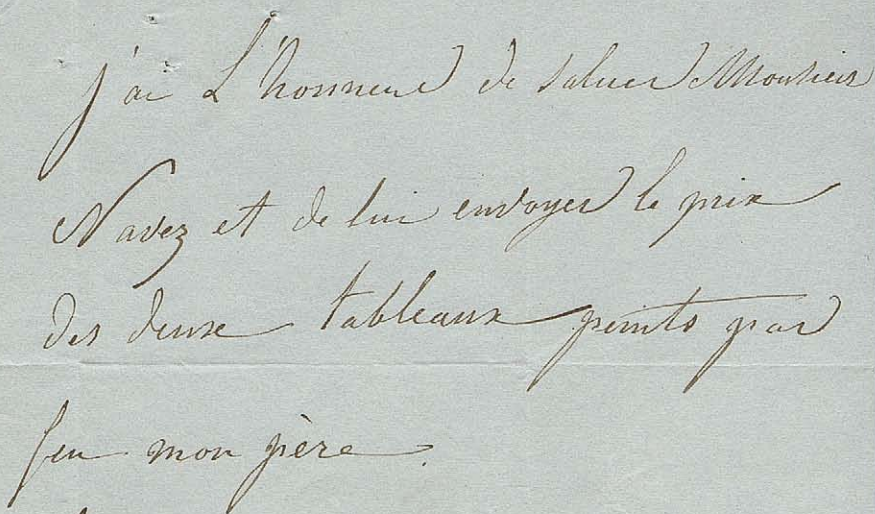 j'ai L'honneur de saluer Monsieur
Navez et de lui envoyer le prix
des deux tableaux peints par
feu mon père.